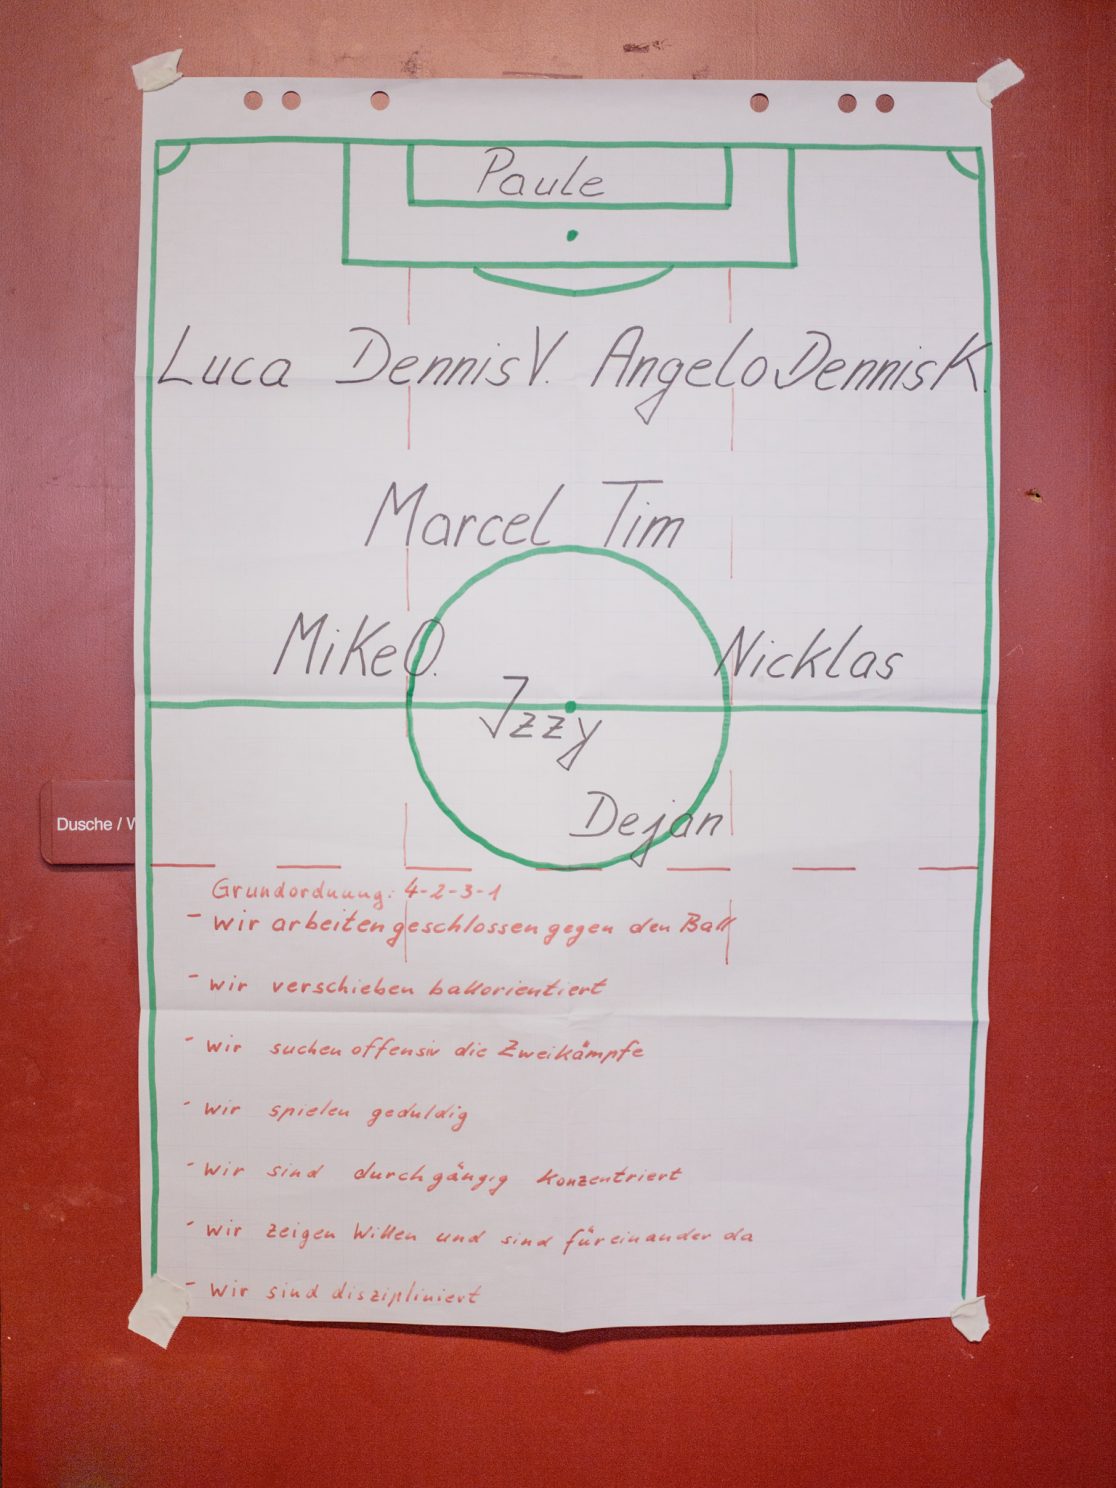 Paule
Luca Dennis V. Angelo Dennis K.
Marcel Tim
Mike O. Nicklas
Izzy
Dejan
Dusche / W
Grundordnung: 4-2-3-1
- wir arbeiten geschlossen gegen den Ball
- wir verschieben ballorientiert
- wir suchen offensiv die Zweikämpfe
- wir spielen geduldig
- wir sind durchgängig konzentriert
- wir zeigen Willen und sind füreinander da
- wir sind diszipliniert